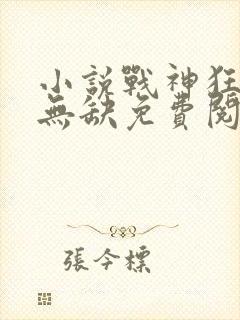 小說戰神狂
無缺免費閱
張今標